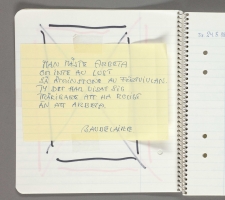 MAN MÅSTE ARBETA
OM INTE AV LUST
SÅ ÅTMINSTONE AV FÖRTVIVLAN.
TY DET HAR VISAT SIG
TRÅKIGARE ATT HA ROLIGT
ÄN ATT ARBETA.
BAUDELAIRE